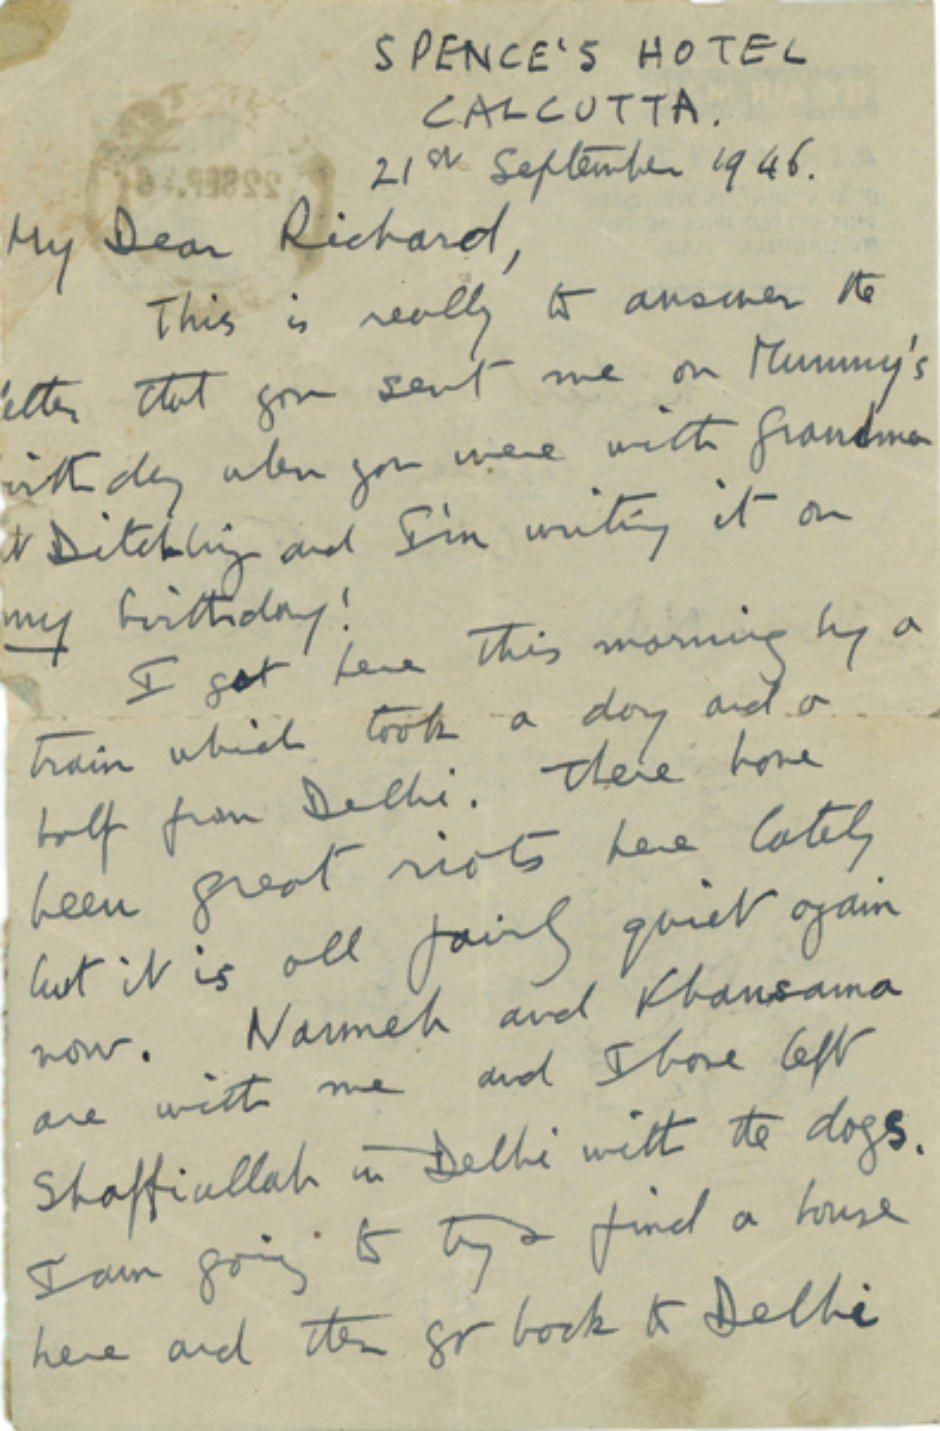 SPENCE'S HOTEL
CALCUTTA.
21st September 1946.
My Dear Richard,
This is really to answer the
letter that you sent me on Mummy's
birthday when you were with Grandma
at Ditchling and I'm writing it on
my birthday!
I got here this morning by a
train which took a day and a
half from Delhi. There have
been great riots here lately
but it is all fairly quiet again
now. and Khansama
are with me and I have left
Shaffiullah in Delhi with the dogs.
I am going to try & find a house
here and then go back to Delhi
22SEP.46